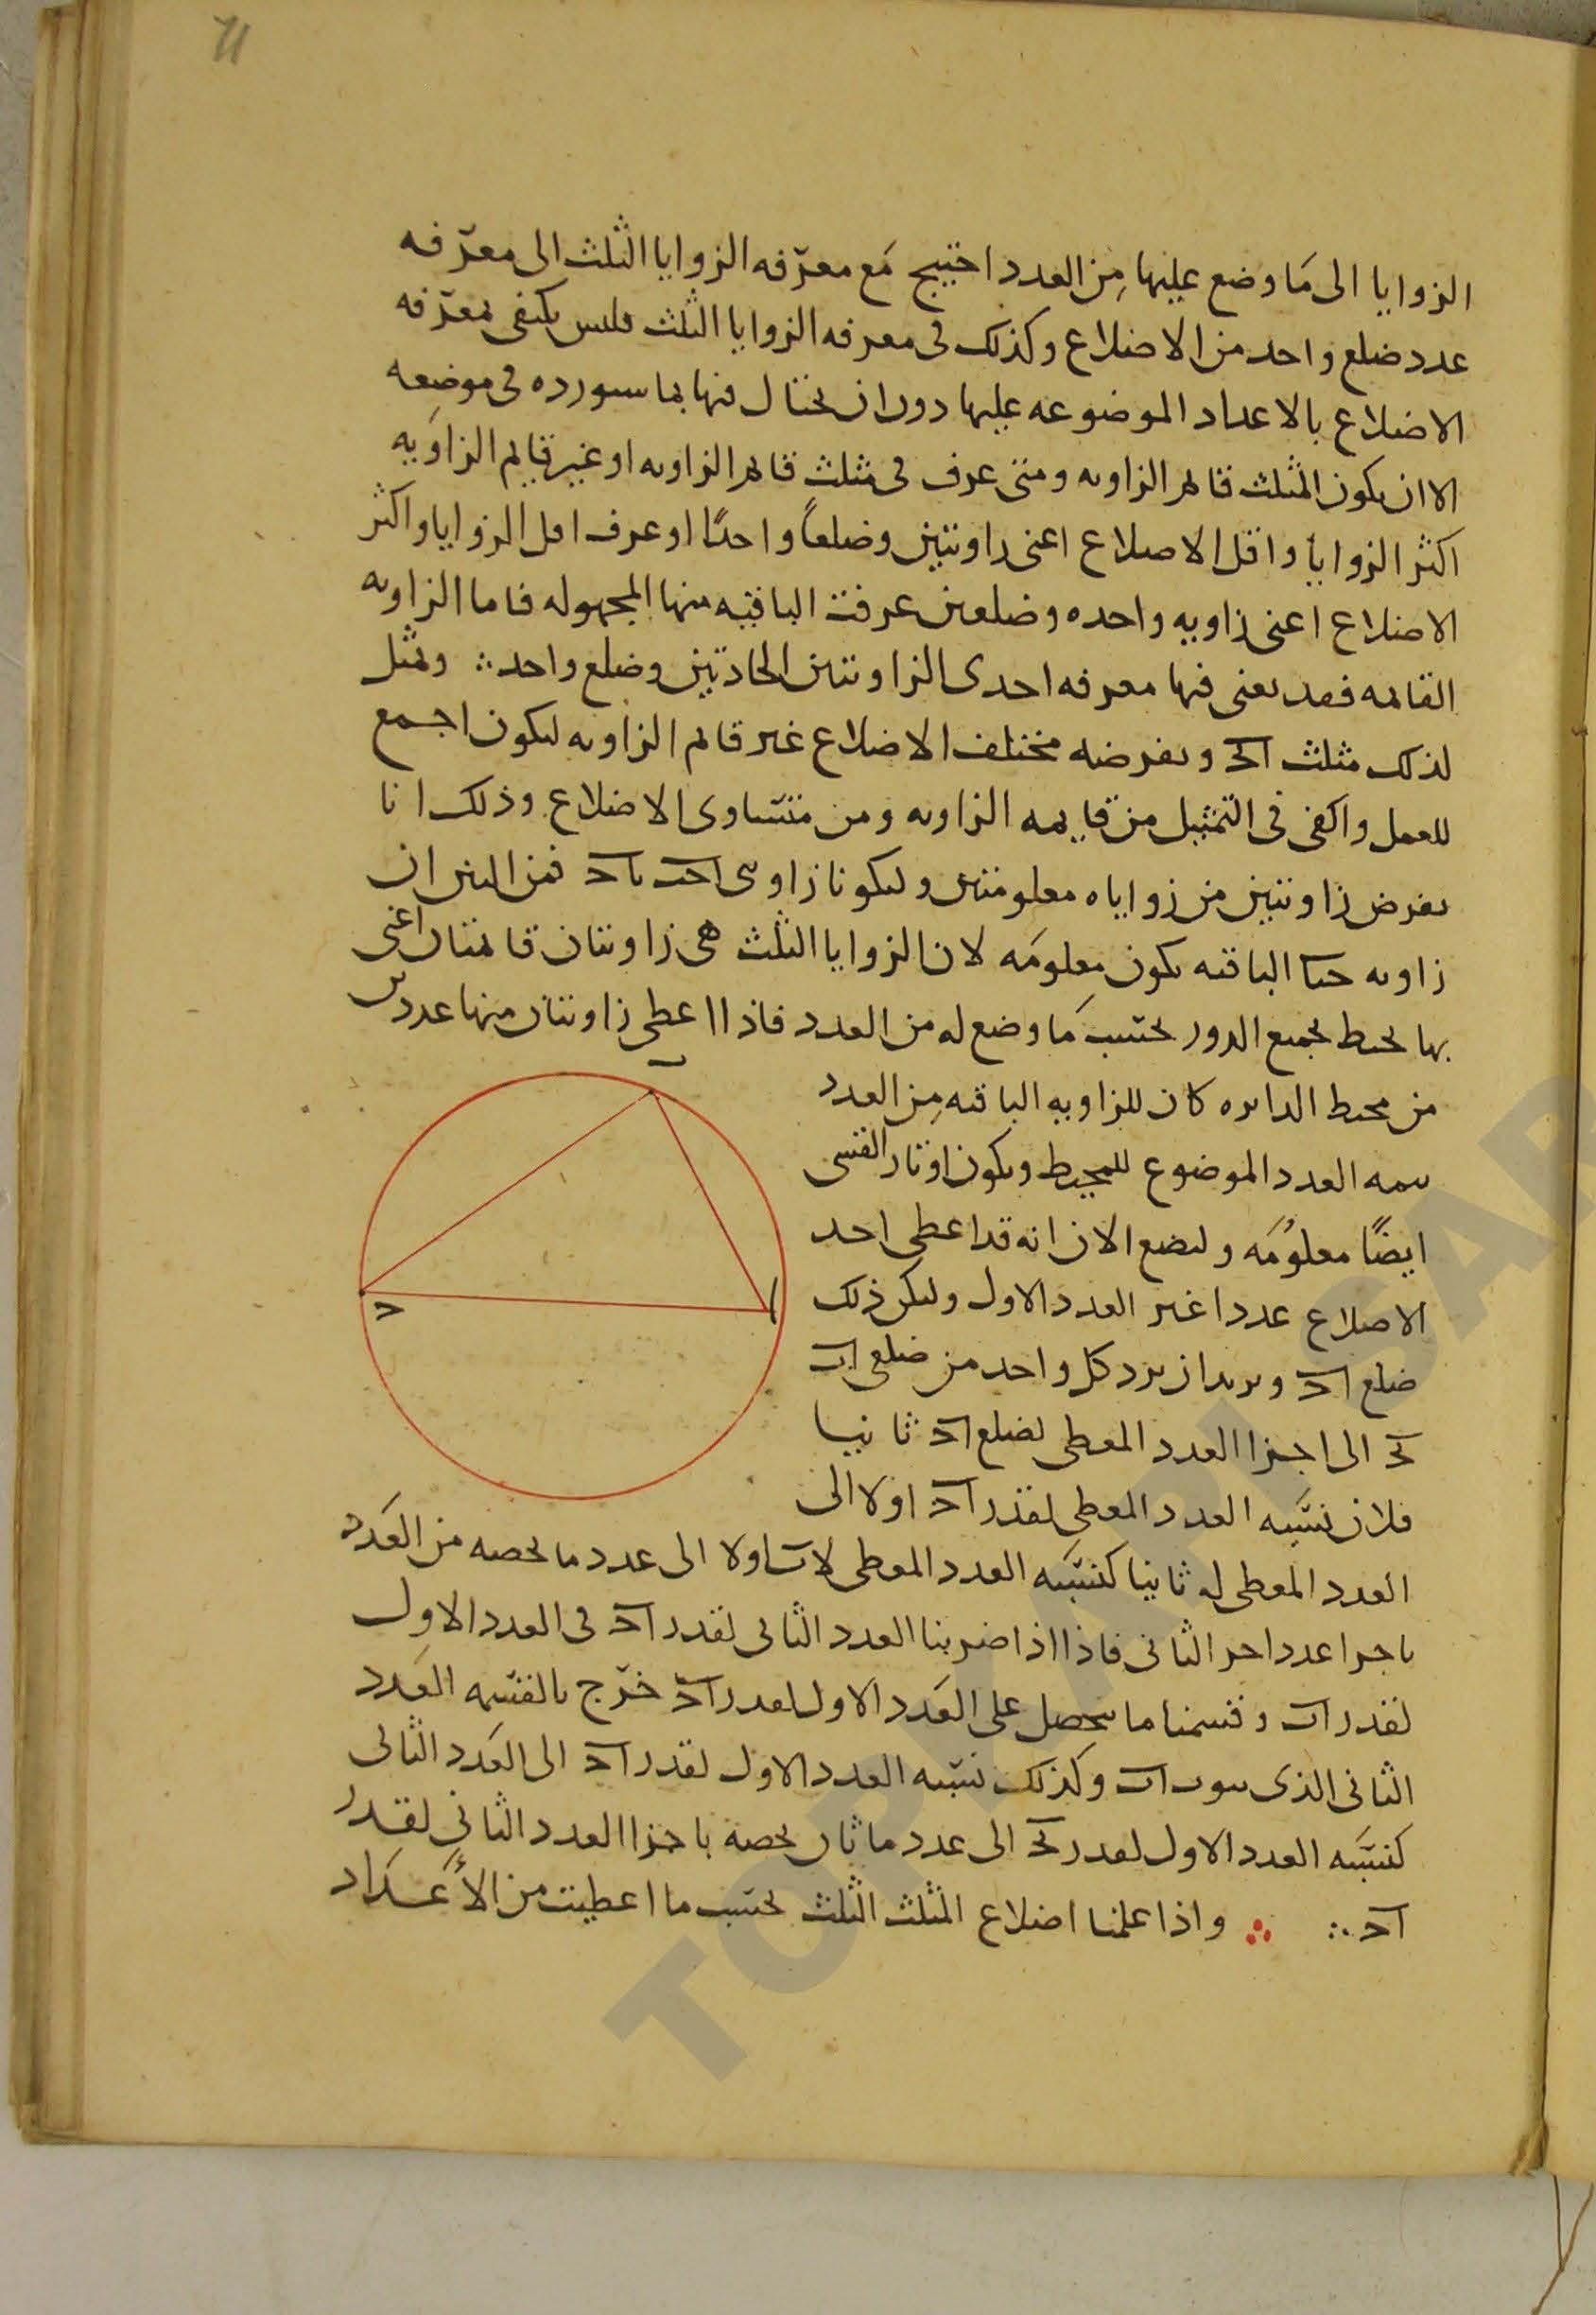 71
الزوايا الى ما وضع عليها من العدد احتيج مع معرفه الزوايا الثلث الى معرفه
عدد ضلع واحد من الاضلاع وكذلك فى معرفه الزوايا الثلث فليس يكتفى بمعرفه
الاضلاع بالاعداد الموضوعه عليها دون ان يحتال فيها بما سنورده فى موضعه
الا ان يكون المثلث قائم الزاويه ومتى عرف فى مثلث قائم الزاويه او غير قايم الزاويه
اكثر الزوايا واقل الاضلاع اعنى زاويتين وضلعاً واحدًا او عرف اقل الزوايا واكثر
الاضلاع اعنى زاويه واحده وضلعين عرفت الباقيه منها المجهوله فاما الزاويه
القائمه فقد يغنى فيها معرفه احدى الزاويتين الحادتين وضلع واحد ∴ ونمثل
لذلك مثلث ابحـ ونفرضه مختلف الاضلاع غير قائم الزاويه ليكون اجمع
للعمل واكفى فى التمثيل من قايمه الزاويه ومن متساوى الاضلاع وذلك انا
نفرض زاويتين من زواياه معلومتين وليكونا زاويتى احب باحـ فمن البين ان
زاويه حبا الباقيه يكون معلومه لان الزوايا الثلث هى زاويتان قائمتان اعنى
بها يحيط بجميع الدور بحسب ما وضع له من العدد فاذا اعطى زاويتان منها عددين
من محيط الدايره كان للزاويه الباقيه من العدد
تتمه العدد الموضوع للمحيط ويكون اوتار القسى
ايضًا معلومه ولنضع الان انه قد اعطى احد
الاضلاع عددا غير العدد الاول وليكن ذلك
ضلع احـ ونريد ان نرد كل واحد من ضلعى اب
بحـ الى اجزا العدد المعطى لضلع احـ ثانيا
فلان نسبه العدد المعطى لقدر احـ اولا الى
العدد المعطى له ثانيا كنسبه العدد المعطى لاب اولا الى عدد ما يخصه من العدد
باجزا عدد احـ الثانى فاذا اذا ضربنا العدد الثانى لقدر احـ فى العدد الاول
لقدر اب وقسمنا ما يحصل على العدد الاول لقدر احـ خرج بالقسمه العدد
الثانى الذى ينوب اب وكذلك نسبه العدد الاول لقدر احـ الى العدد الثانى
كنسبه العدد الاول لقدر بحـ الى عدد ما ثان يخصه باجزا العدد الثانى لقدر
احـ ∴ ∴ واذا علمنا اضلاع المثلث الثلث بحسب ما اعطيت من الأعداد
ب
ا
حـ
TOPKAPI SAR